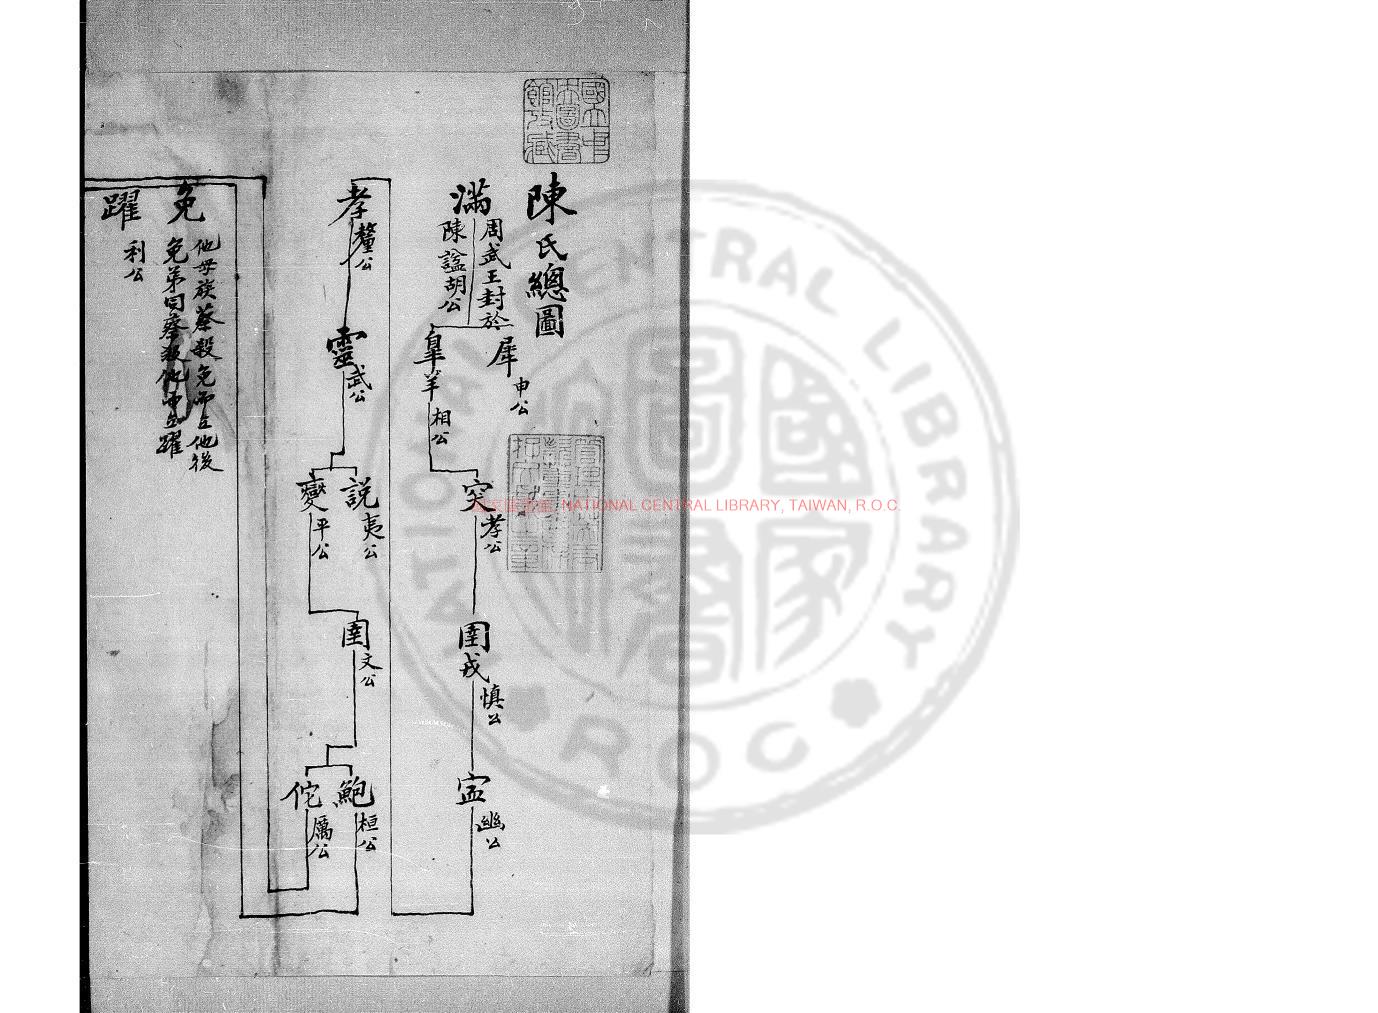 國立中央圖書館收藏
陳氏總圖
滿
周武王封於
陳諡胡公
犀
申公
皐羊
相公
突
孝公
圉戎
慎公
寍
幽公
孝
釐公
靈
武公
說
夷公
燮
平公
圉
文公
鮑
桓公
佗
厲公
免
他母族蔡殺免而立他後
免弟同蔡殺他而立躍
躍
利公
NATIONAL CENTRAL LIBRARY, TAIWAN, R.O.C.
NATIONAL CENTRAL LIBRARY
ROC
國家圖書館